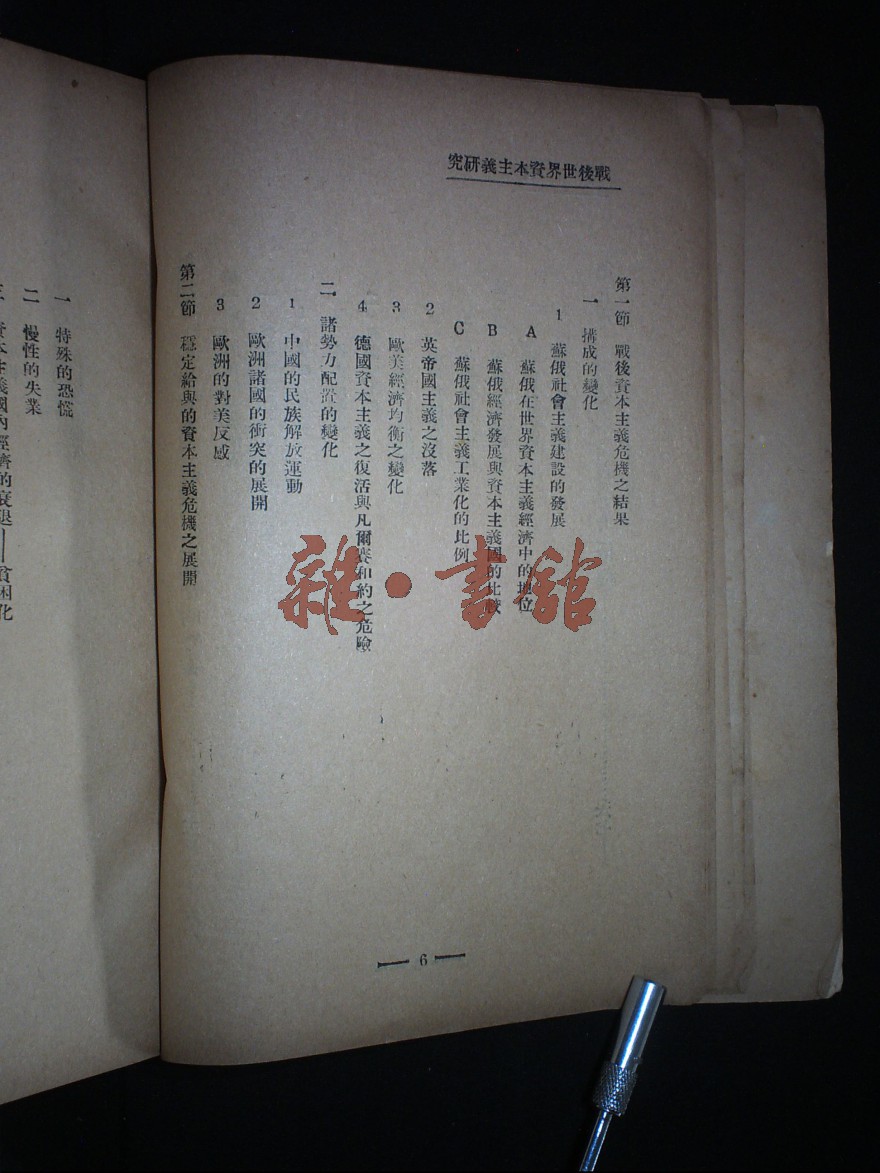 戰後世界資本主義研究
第一節 戰後資本主義危機之結果
一 構成的變化
1 蘇俄社會主義建設的發展
A 蘇俄在世界資本主義經濟中的地位
B 蘇俄經濟發展與資本主義國的比較
C 蘇俄社會主義工業化的比例
2 英帝國主義之沒落
3 歐美經濟均衡之變化
4 德國資本主義之復活與凡爾賽和約之危險
二 諸勢力配置的變化
1 中國的民族解放運動
2 歐洲諸國的衝突的展開
3 歐洲的對美反感
第二節 穩定給與的資本主義危機之展開
— 6 —
一 特殊的恐慌
二 慢性的失業
三 資本主義國內經濟的衰退——貧困化
雜·書館